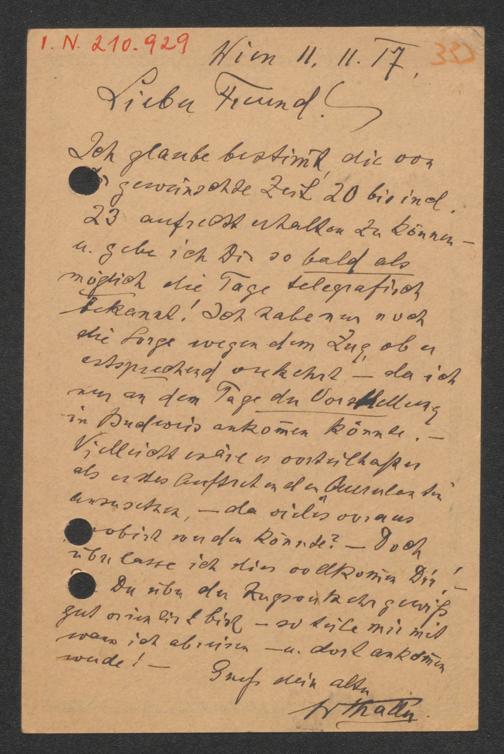 I. N. 210.929
Wien 11. 11. 17.
Lieber Freund!
Ich glaube bestimt, die von
gewünschte Zeit 20 bis incl.
23 aufrecht erhalten zu können –
u. gebe ich Dir so bald als
möglich die Tage telegrafisch
bekannt! Ich habe nur noch
die Sorge wegen dem Zug, ob er
entsprechend verkehrt – da ich
nur an dem Tage der Vorstellung
in Budweis ankomen könnte. –
Vielleicht wäre es vorteilhafter
als erstes Auftreten den
anzusetzen, – da vieles voraus
probirt werden könnte? – Doch
überlasse ich dies vollkomen Dir! –
Du über den Zugsverkehr gewiß
gut orientirt bist – so teile mir mit
wann ich abreisen – u. dort ankomen
werde! –
Gruß dein alter
WThaller